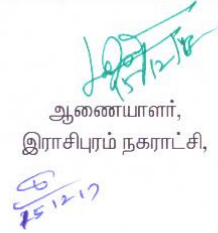 15/12/17
ஆணையாளர்,
இராசிபுரம் நகராட்சி,
15/12/17